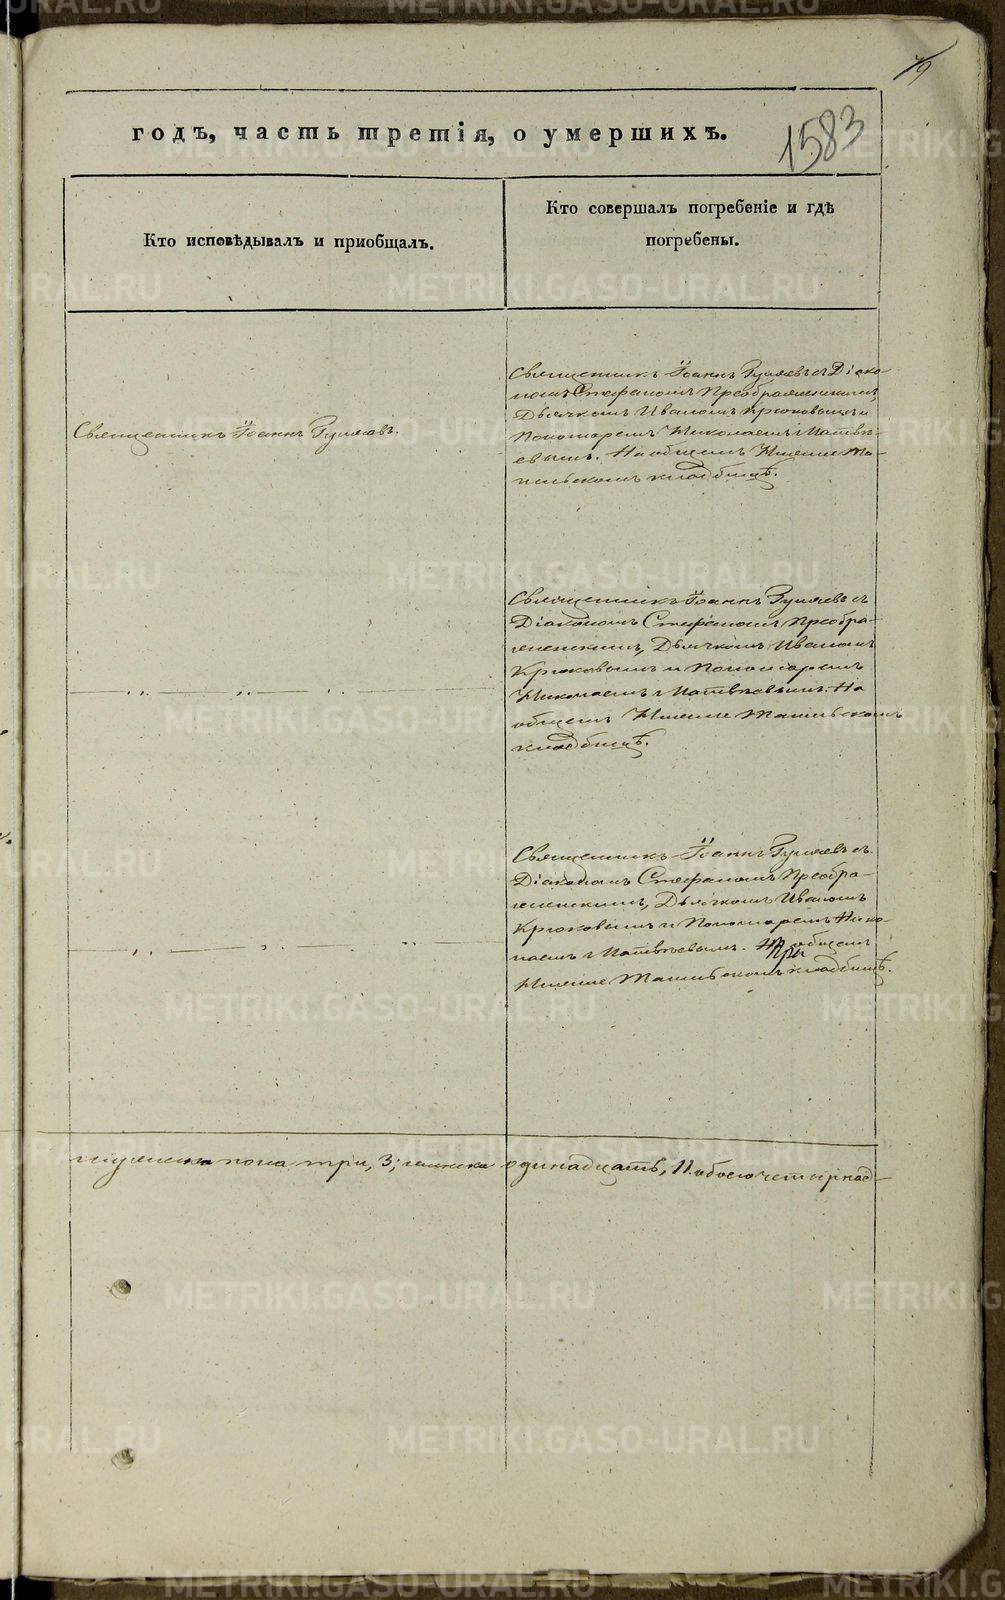 79
годъ, часть третія, о умершихъ.
1583
Кто исповѣдывалъ и приобщалъ.
Кто совершалъ погребеніе и гдѣ
погребены.
Священникъ Іоаннъ Гуляевъ.
Священникъ Іоаннъ Гуляевъ съ Діако
номъ Стефаномъ Преображенскимъ,
Дьячкомъ Иваномъ Крюковымъ и
Пономаремъ Николаемъ Матвѣ-
евымъ. На общемъ Нижне Та-
гильскомъ кладбищѣ.
Священникъ Іоаннъ Гуляевъ съ
Діакономъ Стефаномъ Преобра-
женскимъ, Дьячкомъ Иваномъ
Крюковымъ и Пономаремъ
Николаемъ Матвѣевымъ. На
общемъ Нижне Тагильскомъ
кладбищѣ.
Священникъ Іоаннъ Гуляевъ съ
Діакономъ Стефаномъ Преобра-
женскимъ, Дьячкомъ Иваномъ
Крюковымъ и Пономаремъ Нико-
лаемъ Матвѣевымъ. При общемъ
Нижне Тагильскомъ кладбищѣ.
мужеска пола три, 3; женска одинадцать, 11. обоего четырнад-
METRIKI.GASO-URAL.RU